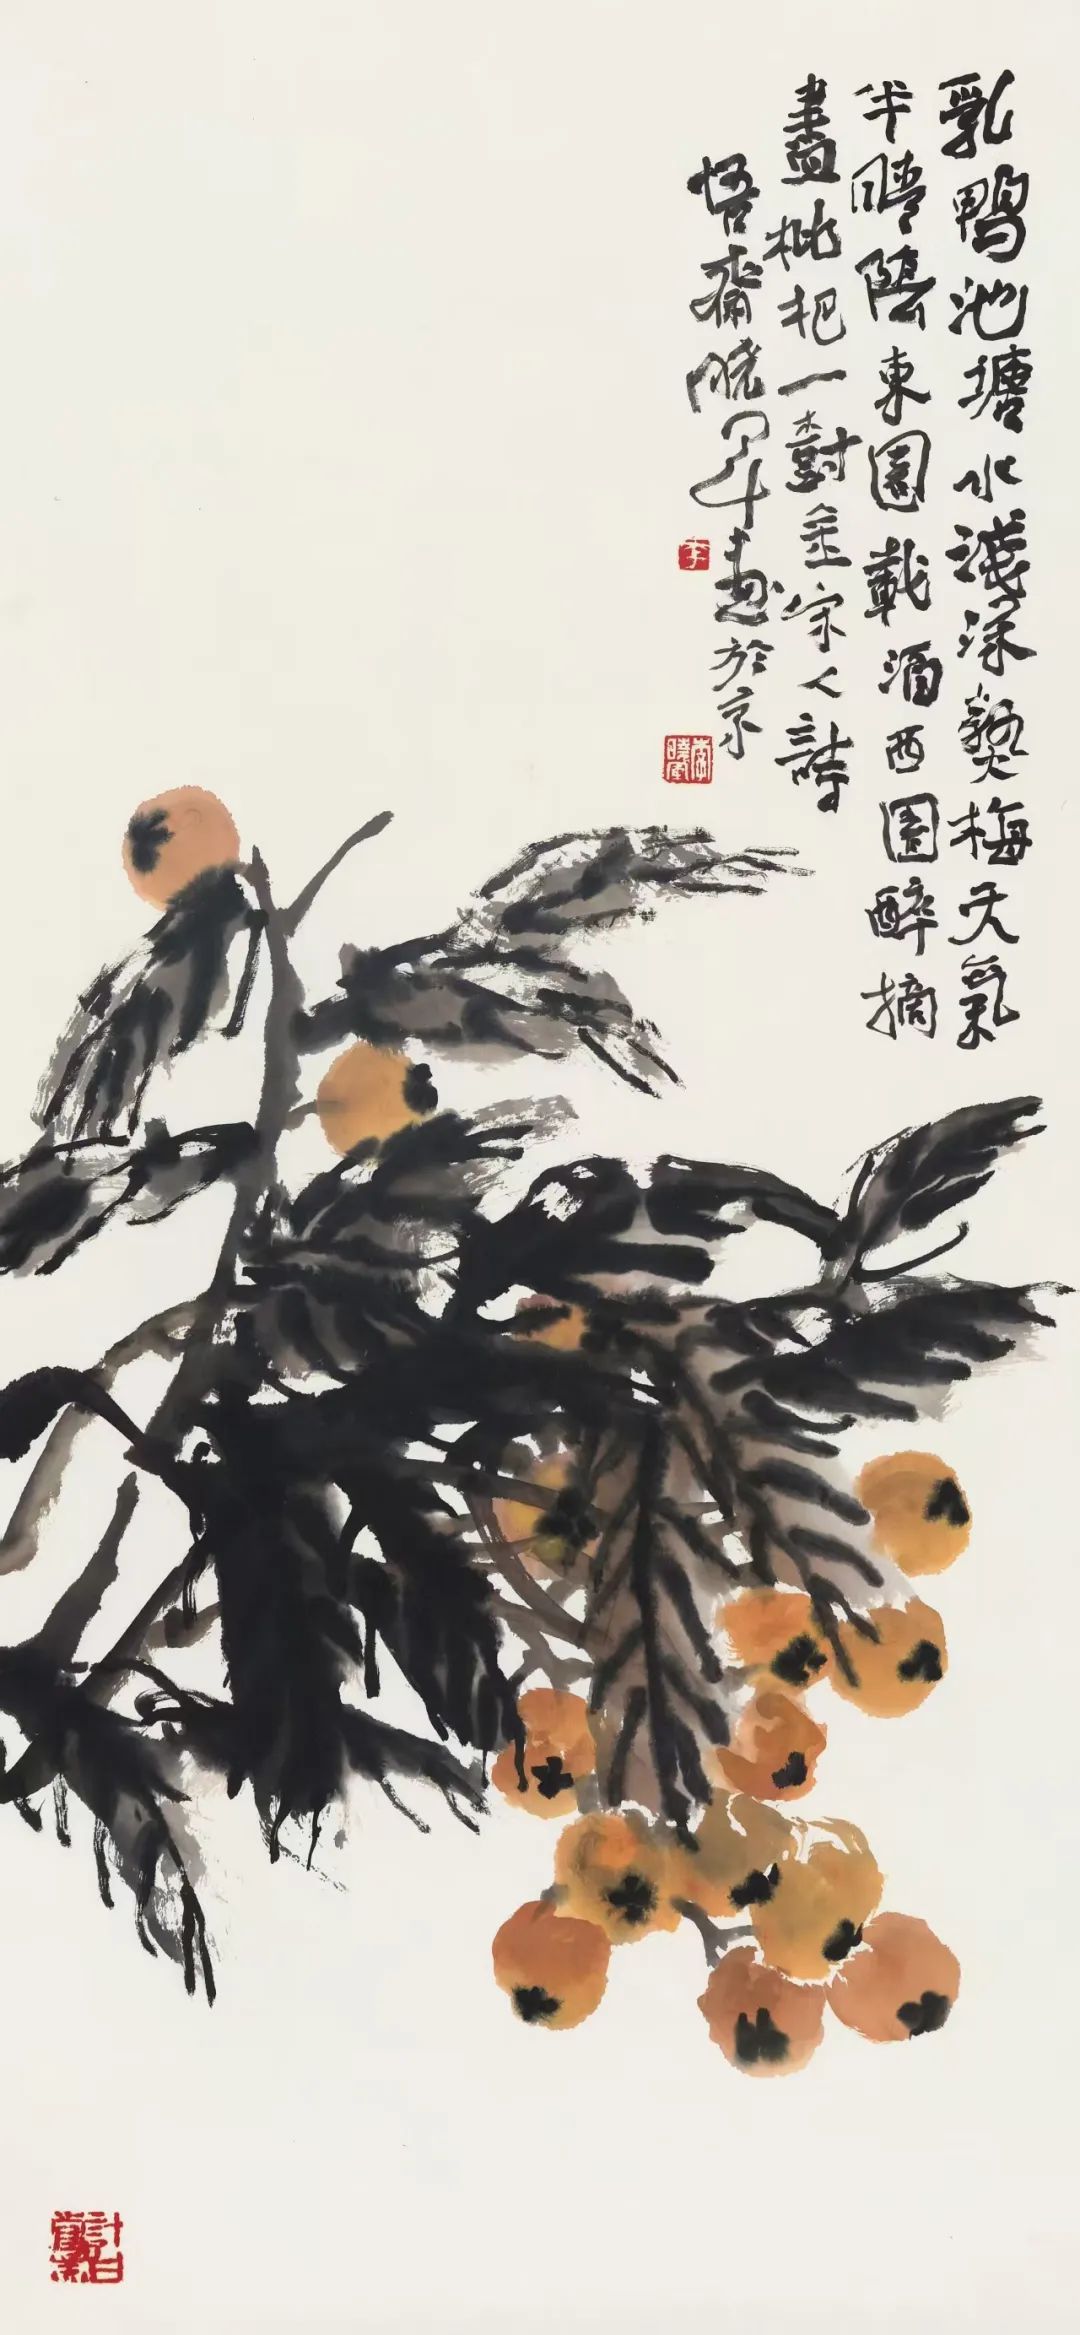 乳鴨池塘水淺深熟梅天氣
半晴陰東園載酒西園醉摘
盡枇杷一樹金宋人詩
悟齋曉軍畫於京
李
李曉軍
計白當黑